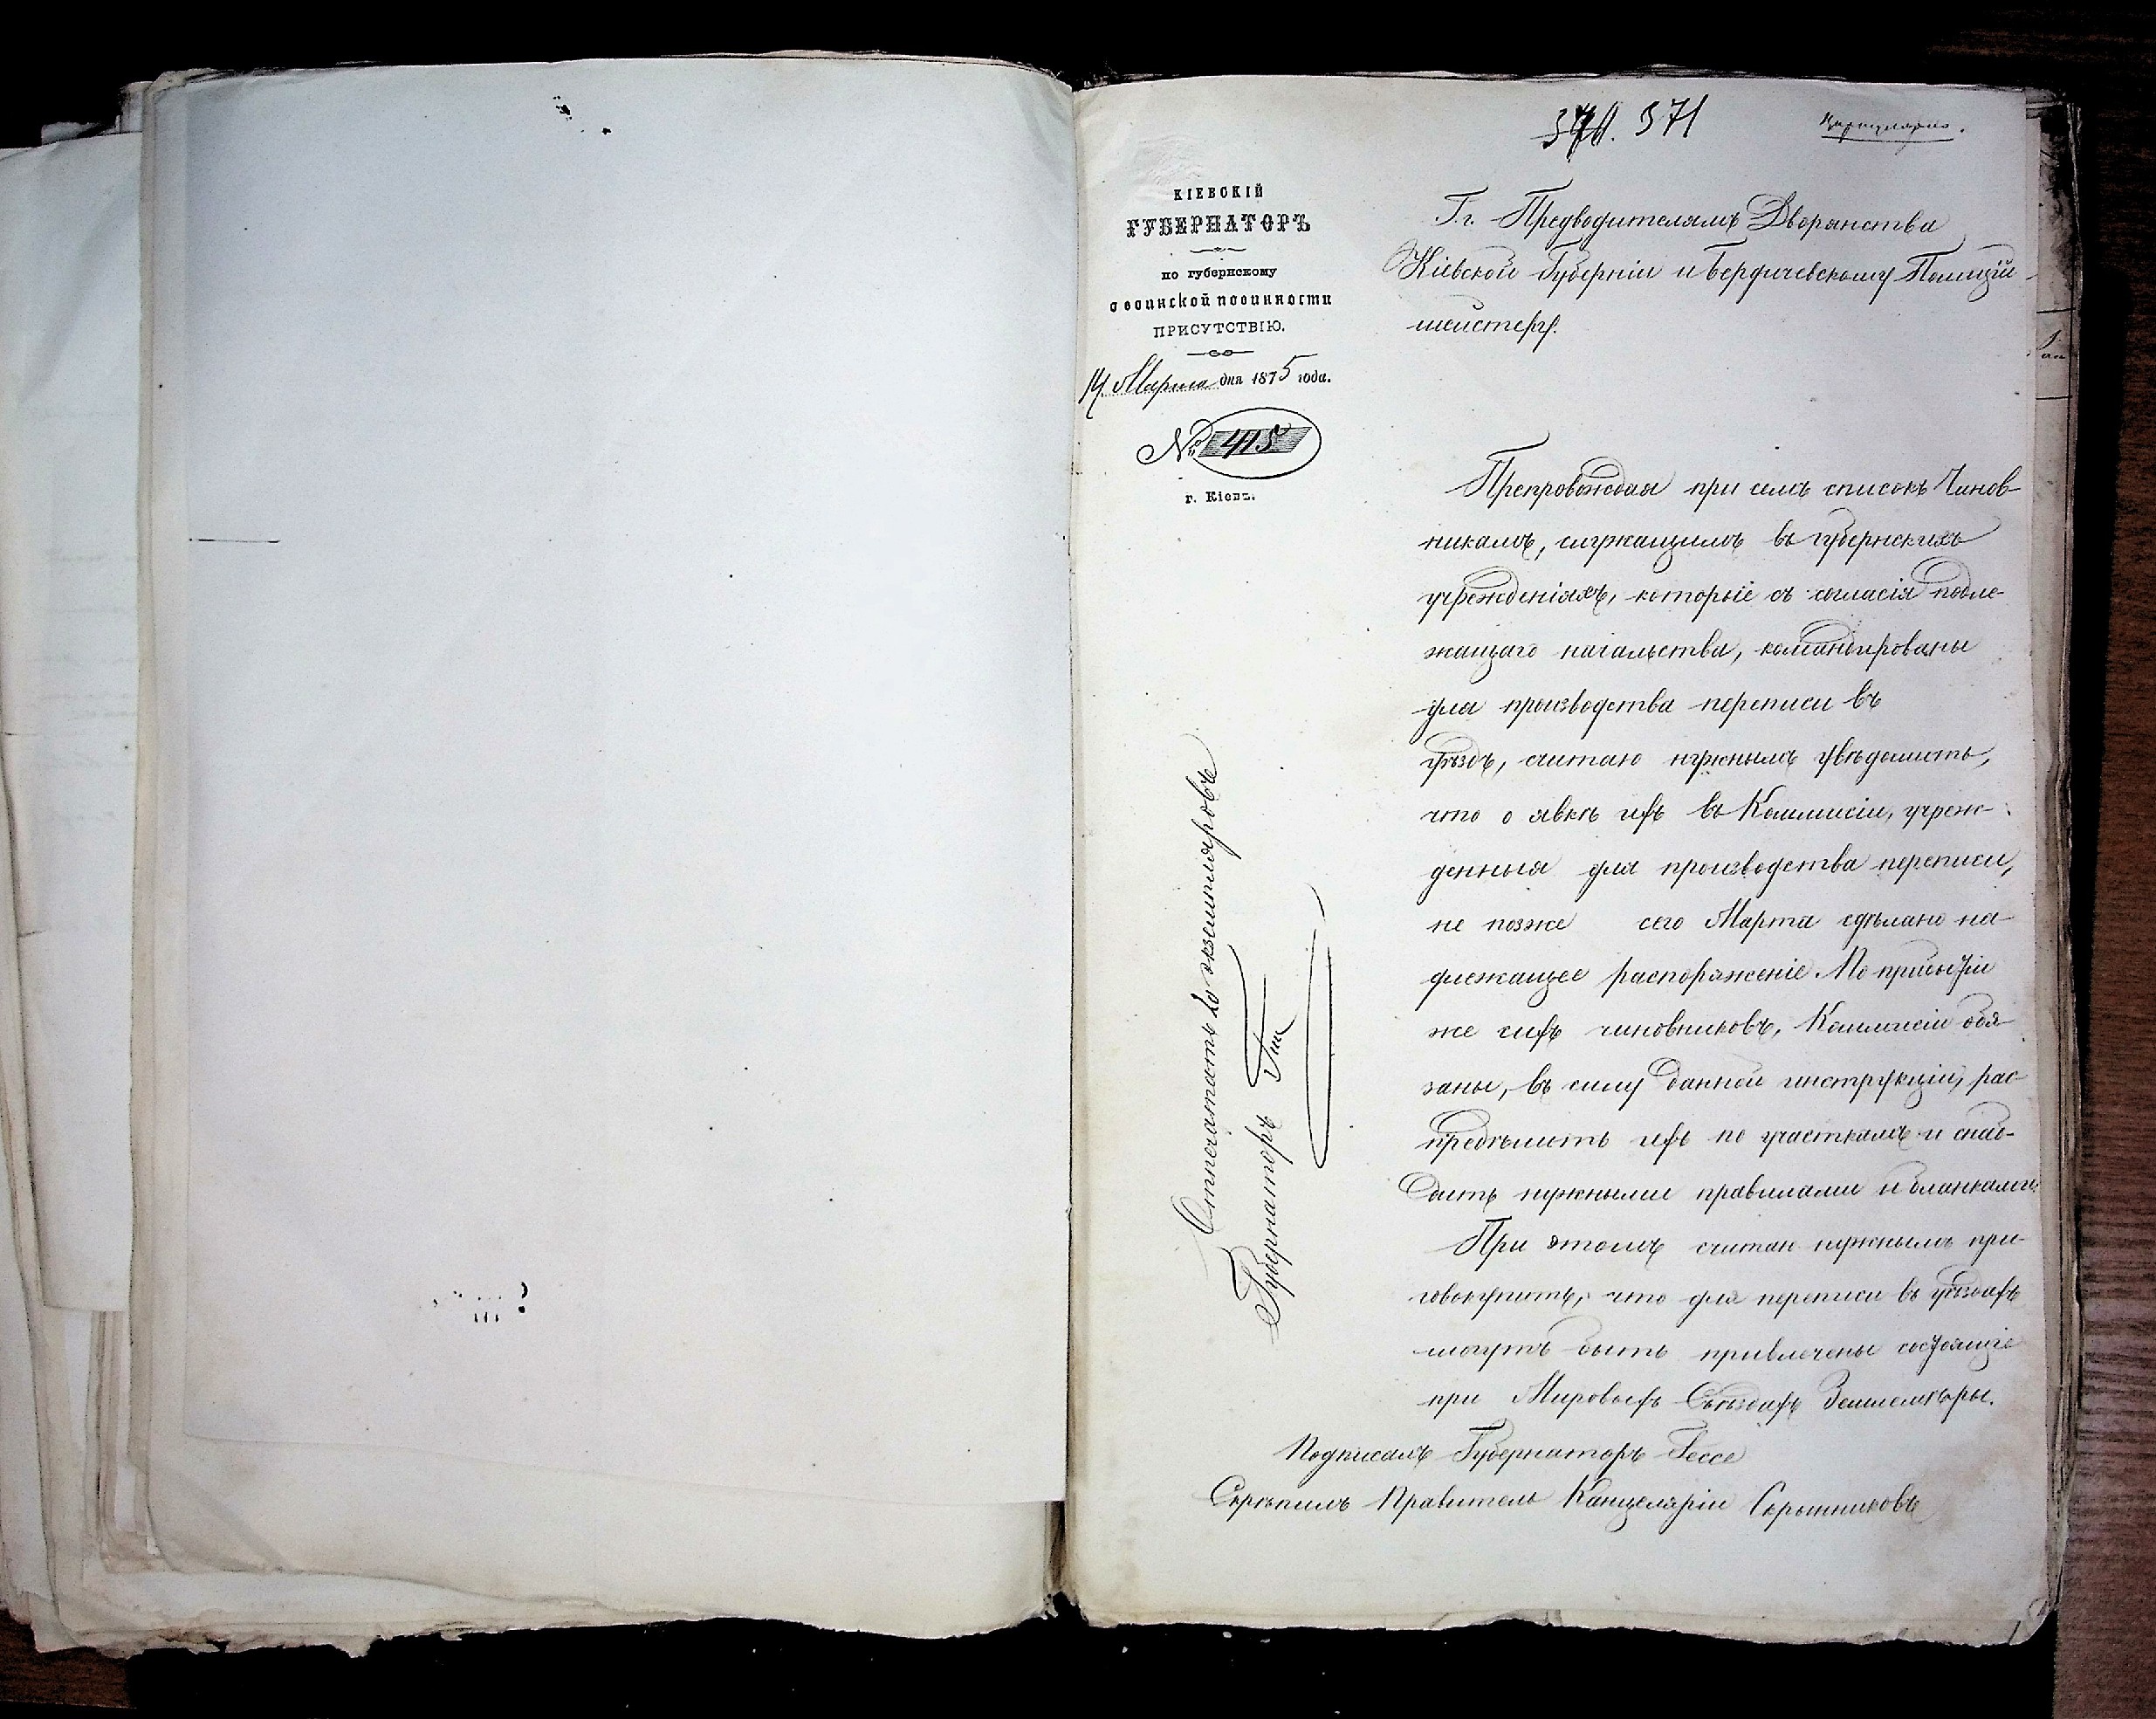 371
Циркулярно.
КІЕВСКІЙ
ГУБЕРНАТОРЪ
по губернскому
о воинской повинности
ПРИСУТСТВІЮ.
14 Марта дня 1875 года.
№ 415
г. Кіевъ.
Г.г. Предводителямъ Дворянства
Кіевской Губерніи и Бердичевскому Полицій-
мейстеру.
Препровождая при семъ списокъ Чинов-
никамъ, служащимъ въ губернскихъ
учрежденіяхъ, которые съ согласія подле-
жащаго начальства, командированы
для производства переписи въ
уѣздъ, считаю нужнымъ увѣдомить,
что о явкѣ ихъ въ Коммисіи, учреж-
денныя для производства переписи,
не позже сего Марта сдѣлано на-
длежащее распоряженіе. По прибытіи
же сихъ чиновниковъ, Коммисіи обя-
заны, въ силу данной инструкціи, рас-
предѣлить ихъ по участкамъ и снаб-
дить нужными правилами и бланками.
При этомъ считаю нужнымъ при-
совокупить, что для переписи въ уѣздахъ
могутъ быть привлечены состоящіе
при Мировыхъ Съѣздахъ Землемѣры.
Подписалъ Губернаторъ Гессе
Скрѣпилъ Правитель Канцеляріи Скрынниковъ
Отпечатать экземпляровъ
Губернаторъ